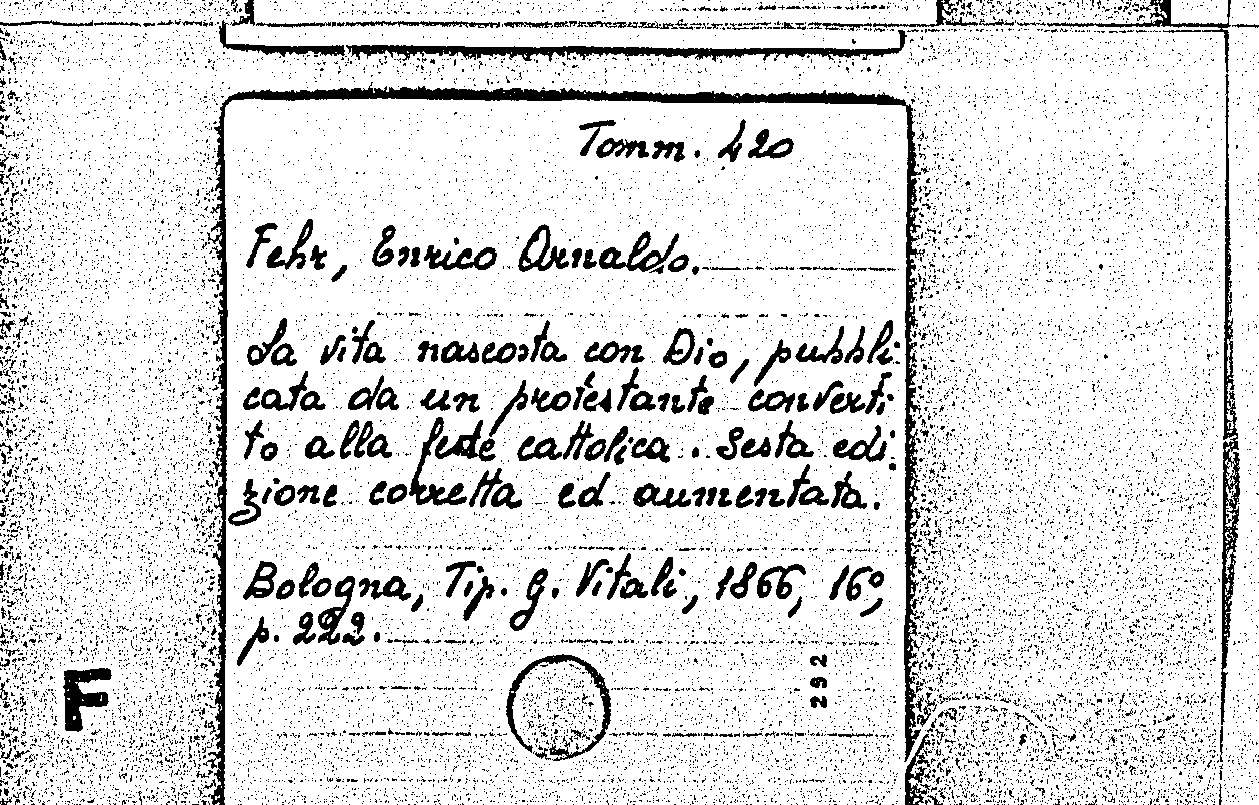 Tomm. 420
Fehr, Enrico Arnaldo.
La vita nascosta con Dio, pubbli-
cata da un protestante converti
to alla fede cattolica. Sesta edi-
zione corretta ed aumentata.
Bologna, Tip. G. Vitali, 1866, 16º,
p. 222.
292
F